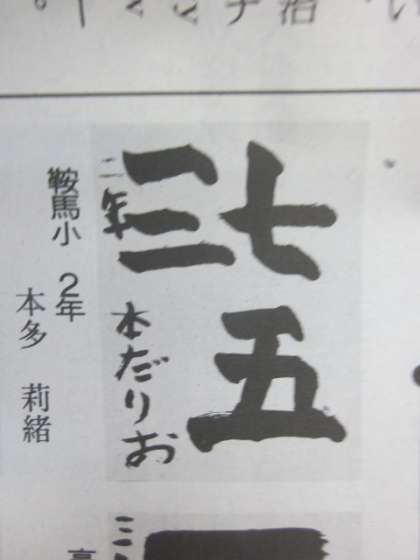 七五
三
二年 本だりお
鞍馬小 2年
本多 莉緒